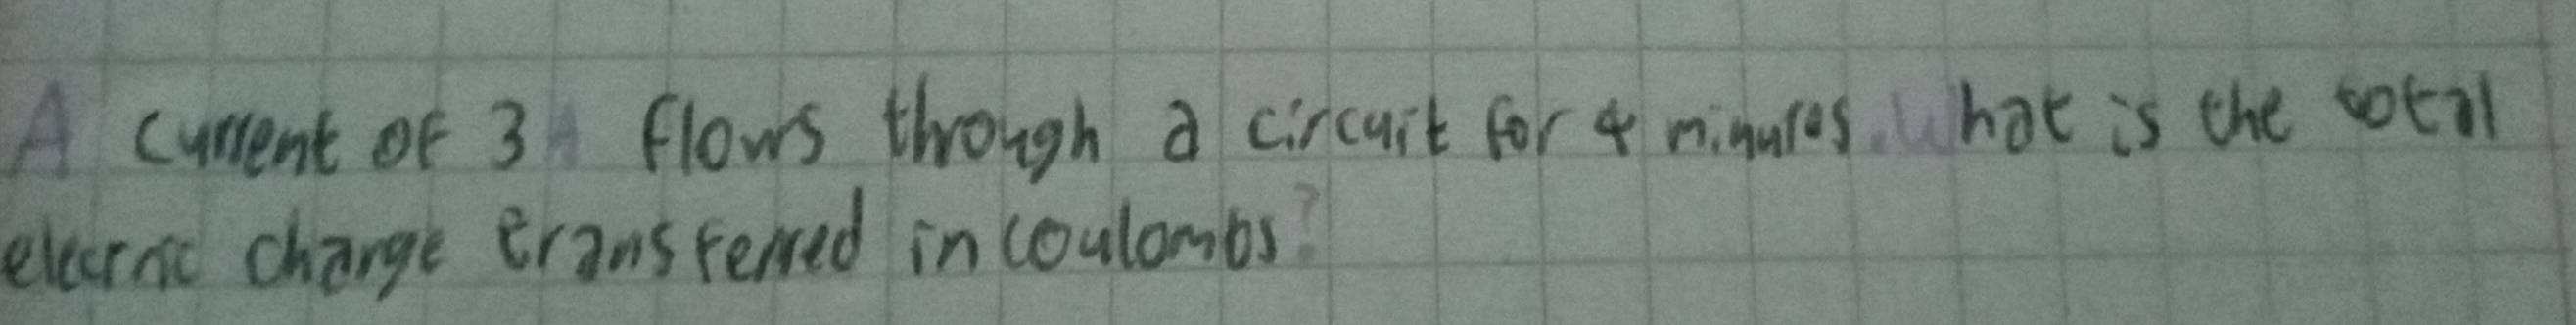 A current of 3A flows through a circuit for 4 minutes. What is the total
electric charge transferred in coulombs?